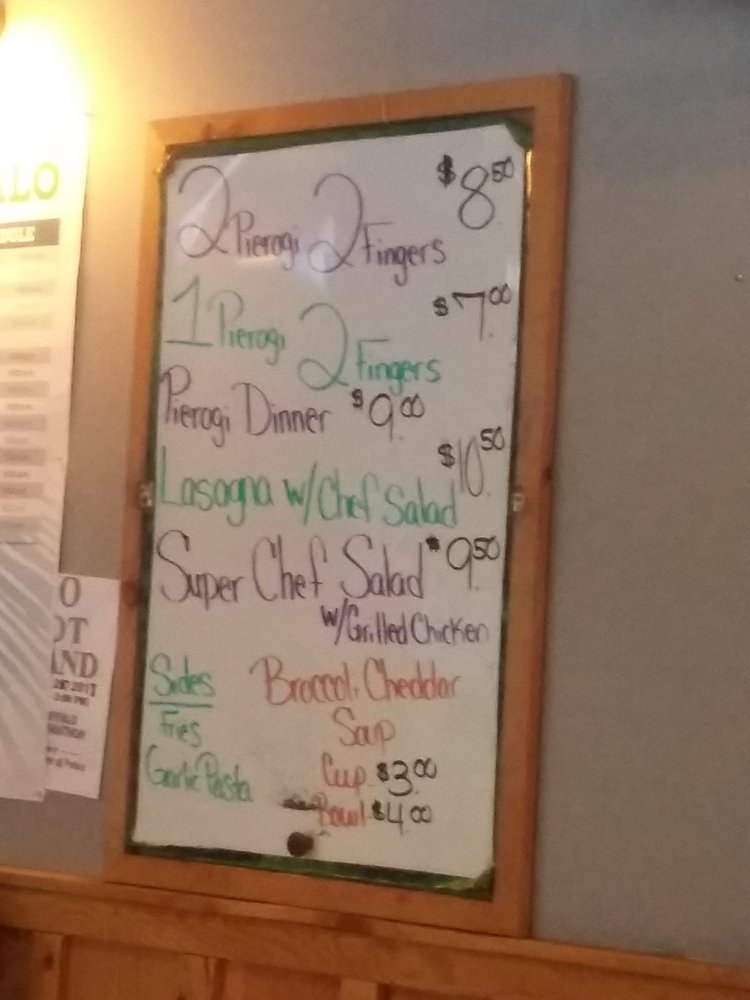 ALO
2 Pierogi 2 Fingers $8.50
1 Pierogi 2 Fingers $7.00
Pierogi Dinner $9.00
Lasagna w/Chef Salad $10.50
Super Chef Salad $9.50
w/Grilled Chicken
Sides
Fries
Garlic Pasta
Broccoli Cheddar
Soup
Cup $3.00
Bowl $4.00
O
OT
AND